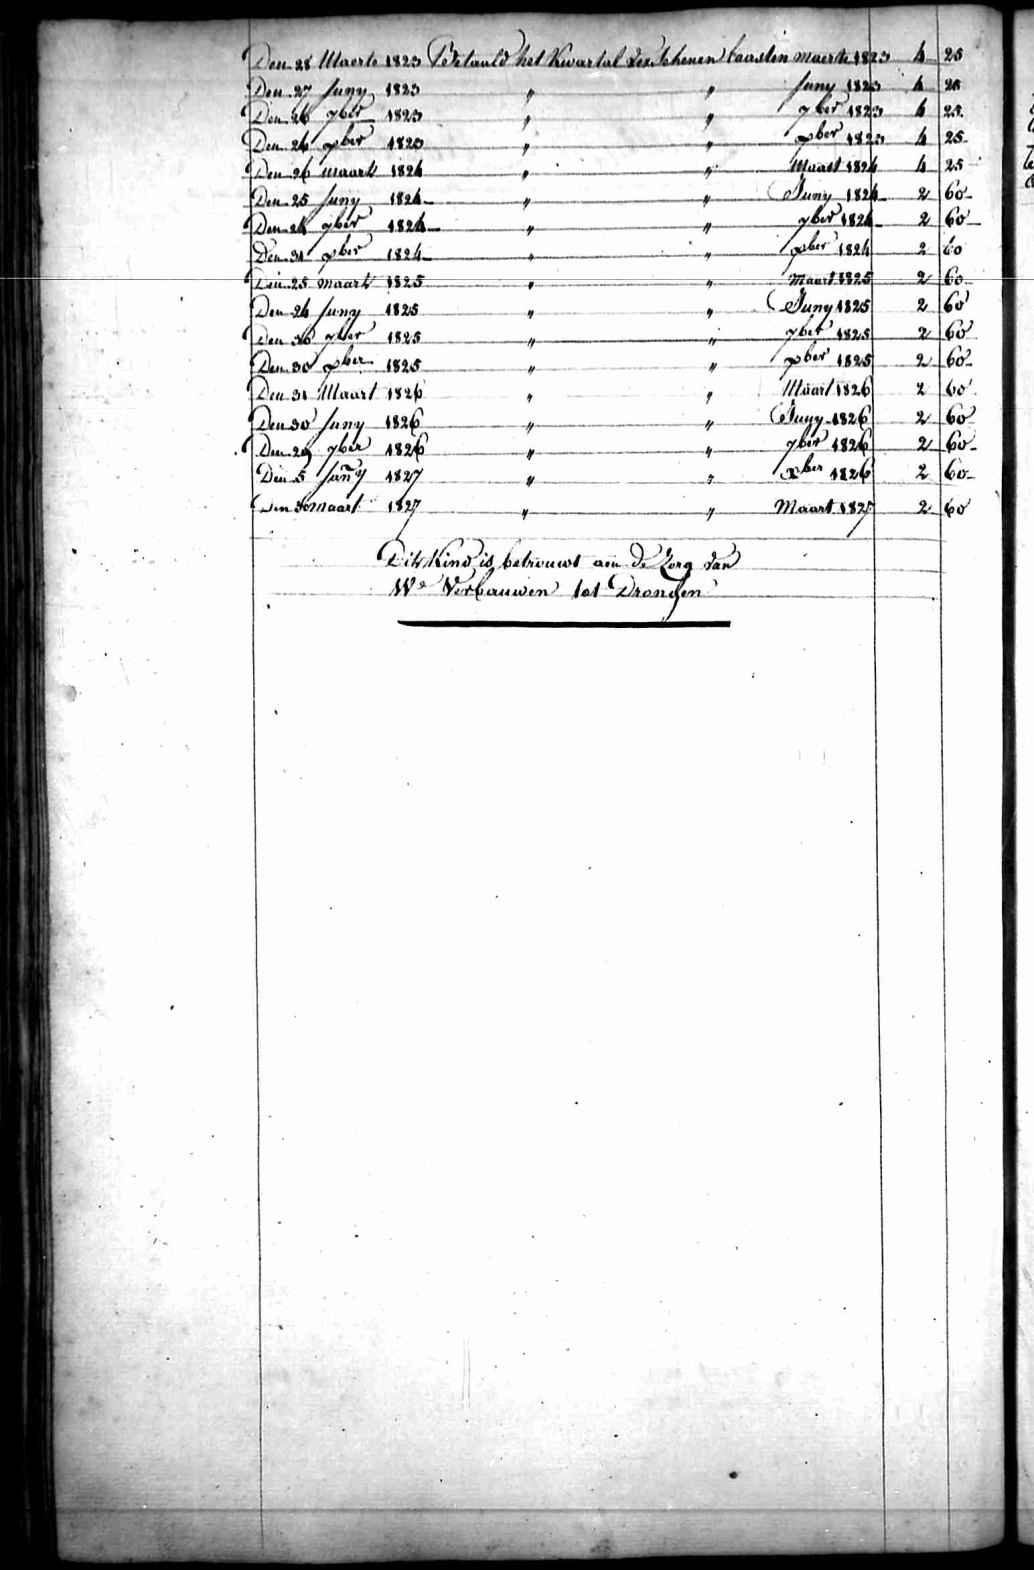 Den 28 Maerte 1823 Betaald het Kwartal verschenen laasten maerte 1823 4 25
Den 27 Juny 1823 " " Juny 1823 4 25
Den 26 7ber 1823 " " 7ber 1823 4 25
Den 24 xber 1823 " " xber 1823 4 25
Den 26 maart 1824 " " Maart 1824 4 25
Den 25 Juny 1824 " " Juny 1824 2 60
Den 24 7ber 1824 " " 7ber 1824 2 60
Den 31 xber 1824 " " xber 1824 2 60
Den 25 maart 1825 " " Maart 1825 2 60
Den 24 Juny 1825 " " Juny 1825 2 60
Den 30 7ber 1825 " " 7ber 1825 2 60
Den 30 xber 1825 " " xber 1825 2 60
Den 31 Maart 1826 " " Maart 1826 2 60
Den 30 Juny 1826 " " Juny 1826 2 60
Den 29 7ber 1826 " " 7ber 1826 2 60
Den 5 Jany 1827 " " xber 1826 2 60
Den 30 maart 1827 " " Maart 1827 2 60
Dit Kind is betrouwt aen de Zorg van
We Verbauwen tot Drongen